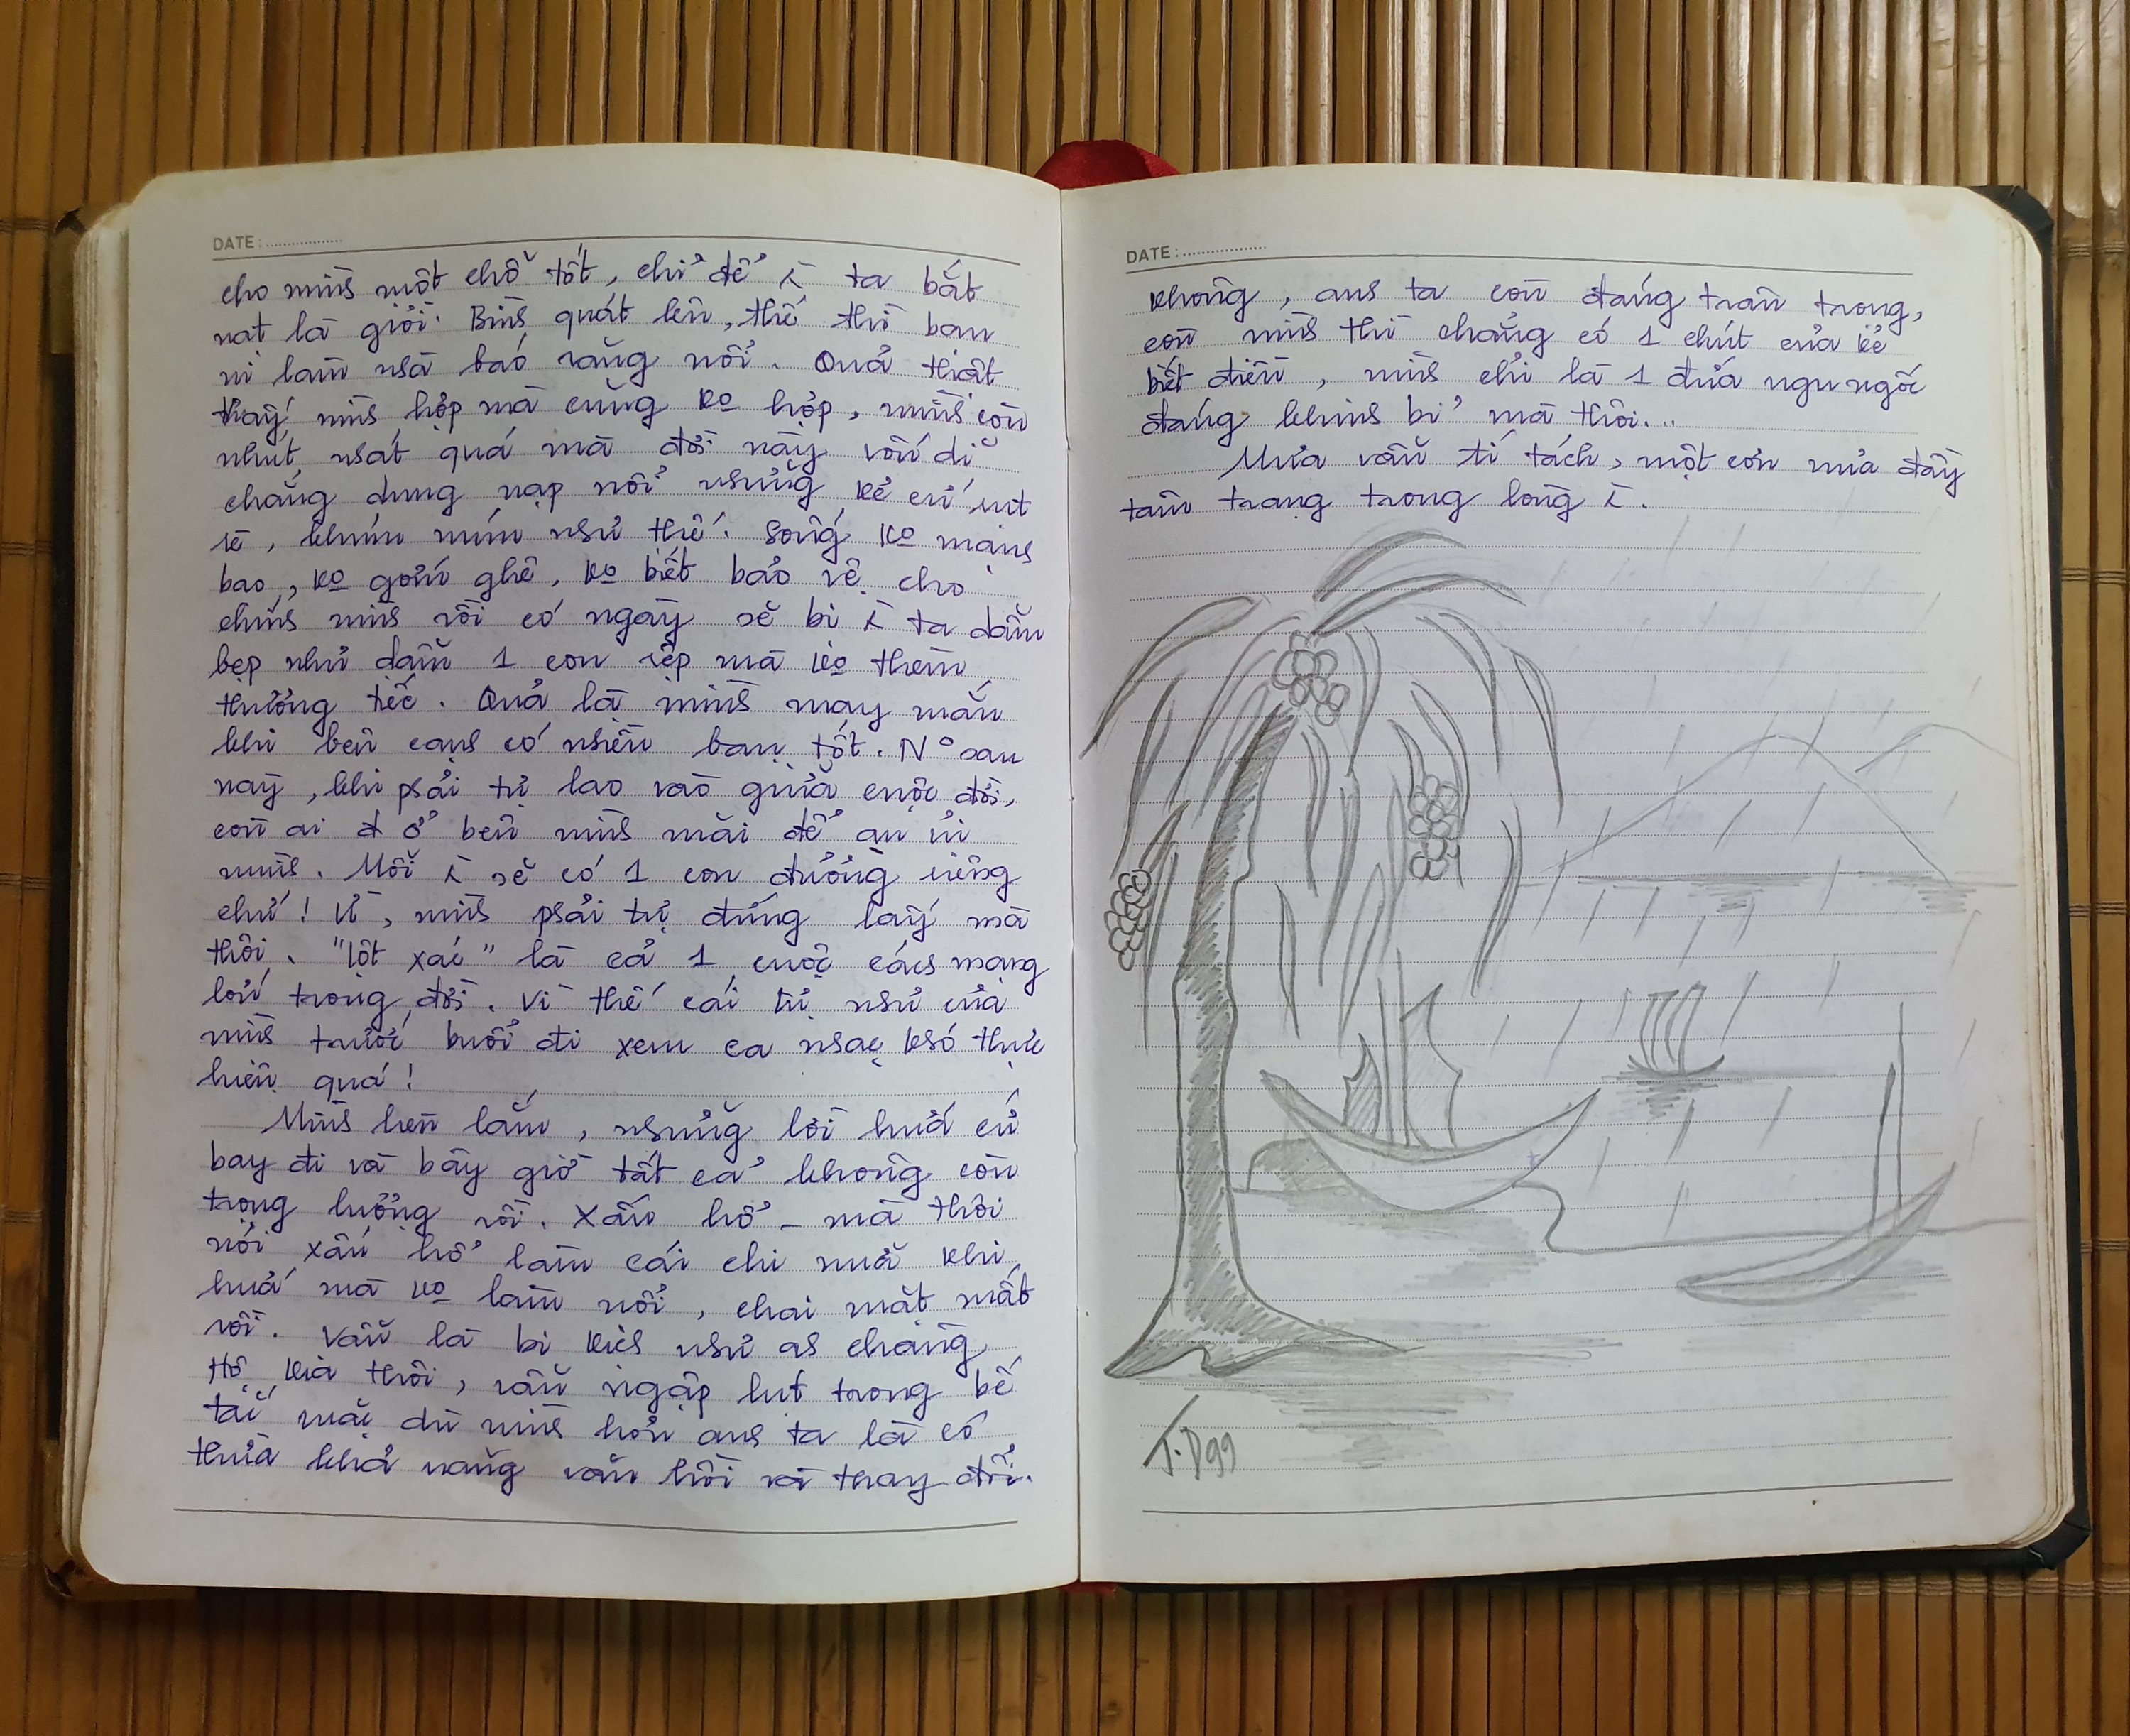 DATE:
cho mình một chỗ tốt, chỉ để λ ta bắt
nạt là giỏi. Bình quát lên, thế thì ban
ni làm nhà báo răng nổi. Quả thiệt
thấy mình hợp mà cũng ko hợp, mình còn
nhút nhát quá mà đời này vốn dĩ
chẳng dung nạp nổi những kẻ cứ rụt
rè, khúm núm như thế. Sống ko mạnh
bạo, ko gớm ghê, ko biết bảo vệ cho
chính mình rồi có ngày sẽ bị λ ta dẫm
bẹp như dẫm 1 con rệp mà ko thèm
thương tiếc. Quả là mình may mắn
khi bên cạnh có nhiều bạn tốt. No sau
này, khi phải tự lao vào giữa cuộc đời,
còn ai ở bên mình mãi để an ủi
mình. Mỗi λ sẽ có 1 con đường riêng
chứ! Ừ, mình phải tự đứng lấy mà
thôi. "Lột xác" là cả 1 cuộc cách mạng
lớn trong đời. Vì thế cái tự nhủ của
mình trước buổi đi xem ca nhạc khó thực
hiện quá!
Mình hèn lắm, những lời hứa cứ
bay đi và bây giờ tất cả không còn
trọng lượng rồi. Xấu hổ - mà thôi
nói xấu hổ làm cái chi nữa khi
hứa mà ko làm nổi, chai mặt mất
rồi. Vẫn là bi kịch như as chàng
Hộ kia thôi, vẫn ngập lụt trong bế
tắc mặc dù mình hơn anh ta là có
thừa khả năng vãn hồi và thay đổi.
DATE:
Không, anh ta còn đáng trân trọng,
còn mình thì chẳng có 1 chút của kẻ
biết điều, mình chỉ là 1 đứa ngu ngốc
đáng khinh bỉ mà thôi...
Mưa vẫn tí tách, một cơn mưa đầy
tâm trạng trong lòng λ.
T.D99